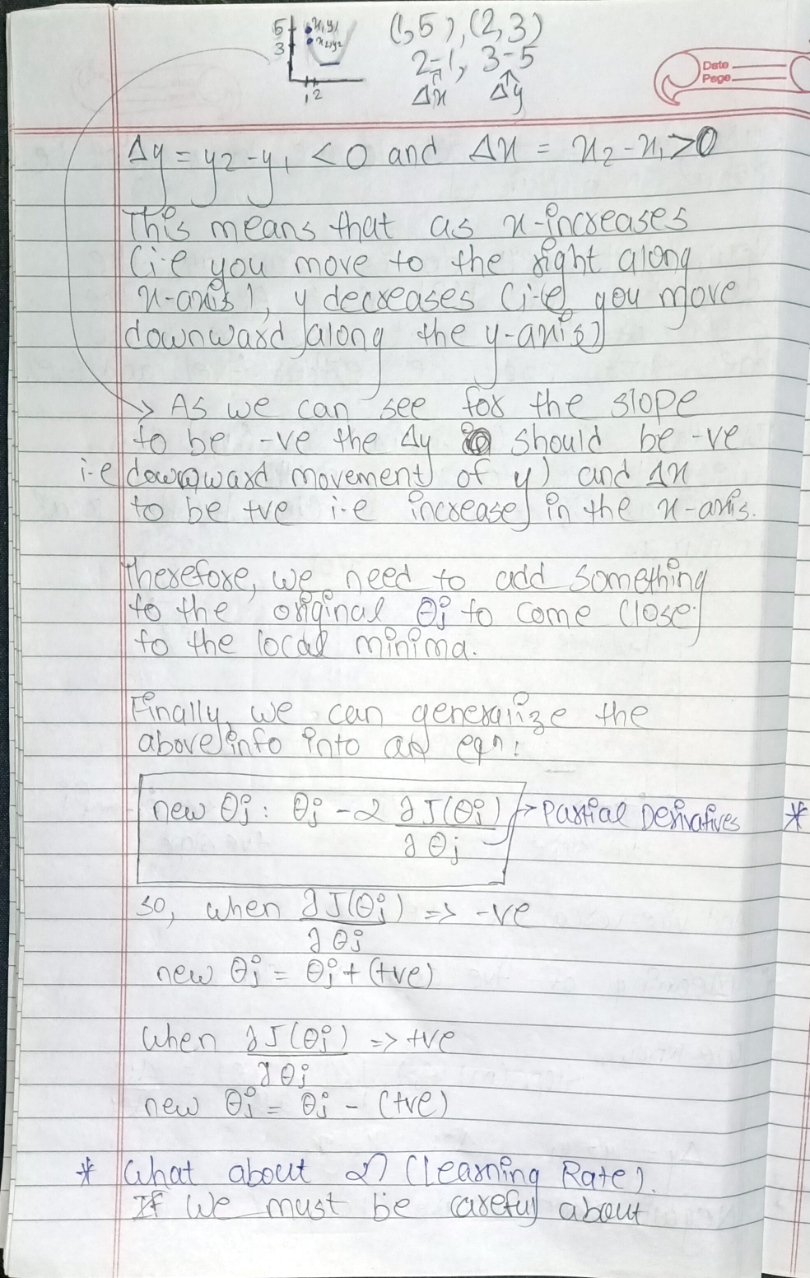 5
3
x1,y1
x2,y2
1 2
(1,5), (2,3)
2-1, 3-5
Δx Δy
Date
Page
Δy = y2 - y1 < 0 and Δx = x2 - x1 > 0
This means that as x-increases
(i-e you move to the right along
x-axis), y decreases (i-e you move
downward along the y-axis)
→ As we can see for the slope
to be -ve the Δy should be -ve
i-e downward movement of y) and Δx
to be +ve i-e increase in the x-axis.
Therefore, we need to add something
to the original θj to come close
to the local minima.
Finally, we can generalize the
above info into an eqn:
new θj : θj - α ∂J(θj) → Partial Derivatives *
∂θj
so, when ∂J(θj) => -ve
∂θj
new θj = θj + (+ve)
When ∂J(θj) => +ve
∂θj
new θj = θj - (+ve)
* What about α? (Learning Rate).
If we must be careful about